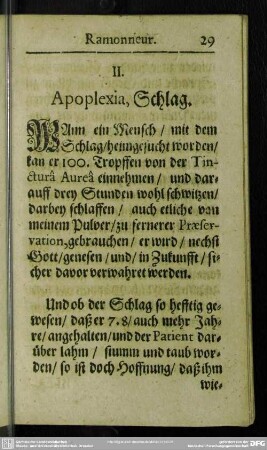 Ramonneur. 29
II.
Apoplexia, Schlag.
WAnn ein Mensch / mit dem
Schlag / heimgesucht worden /
kan er 100. Tropffen von der Tin-
cturâ Aureâ einnehmen / und dar-
auff drey Stunden wohl schwitzen /
darbey schlaffen / auch etliche von
meinem Pulver / zu fernerer Præser-
vation, gebrauchen / er wird / nechst
Gott / genesen / und / in Zukunfft / si-
cher davor verwahret werden.
Und ob der Schlag so hefftig ge-
wesen / daß er 7. 8 / auch mehr Jah-
re / angehalten / und der Patient dar-
über lahm / stumm und taub wor-
den / so ist doch Hoffnung / daß ihm
wie-